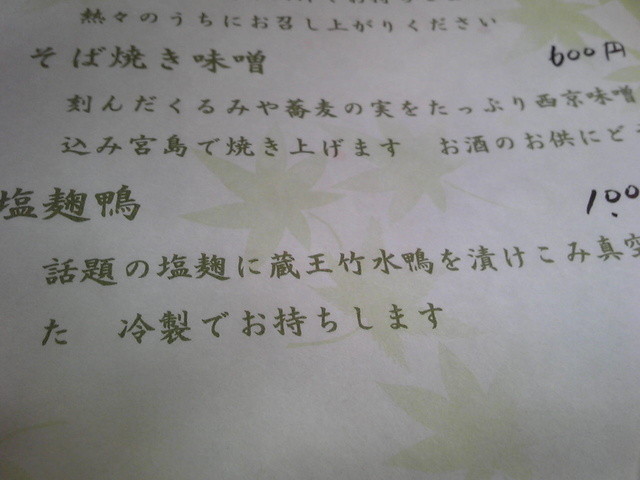 熱々のうちにお召し上がりください
そば焼き味噌 600円
刻んだくるみや蕎麦の実をたっぷり西京味噌
込み宮島で焼き上げます お酒のお供にど
塩麹鴨 1,00
話題の塩麹に蔵王竹水鴨を漬けこみ真空
た 冷製でお持ちします